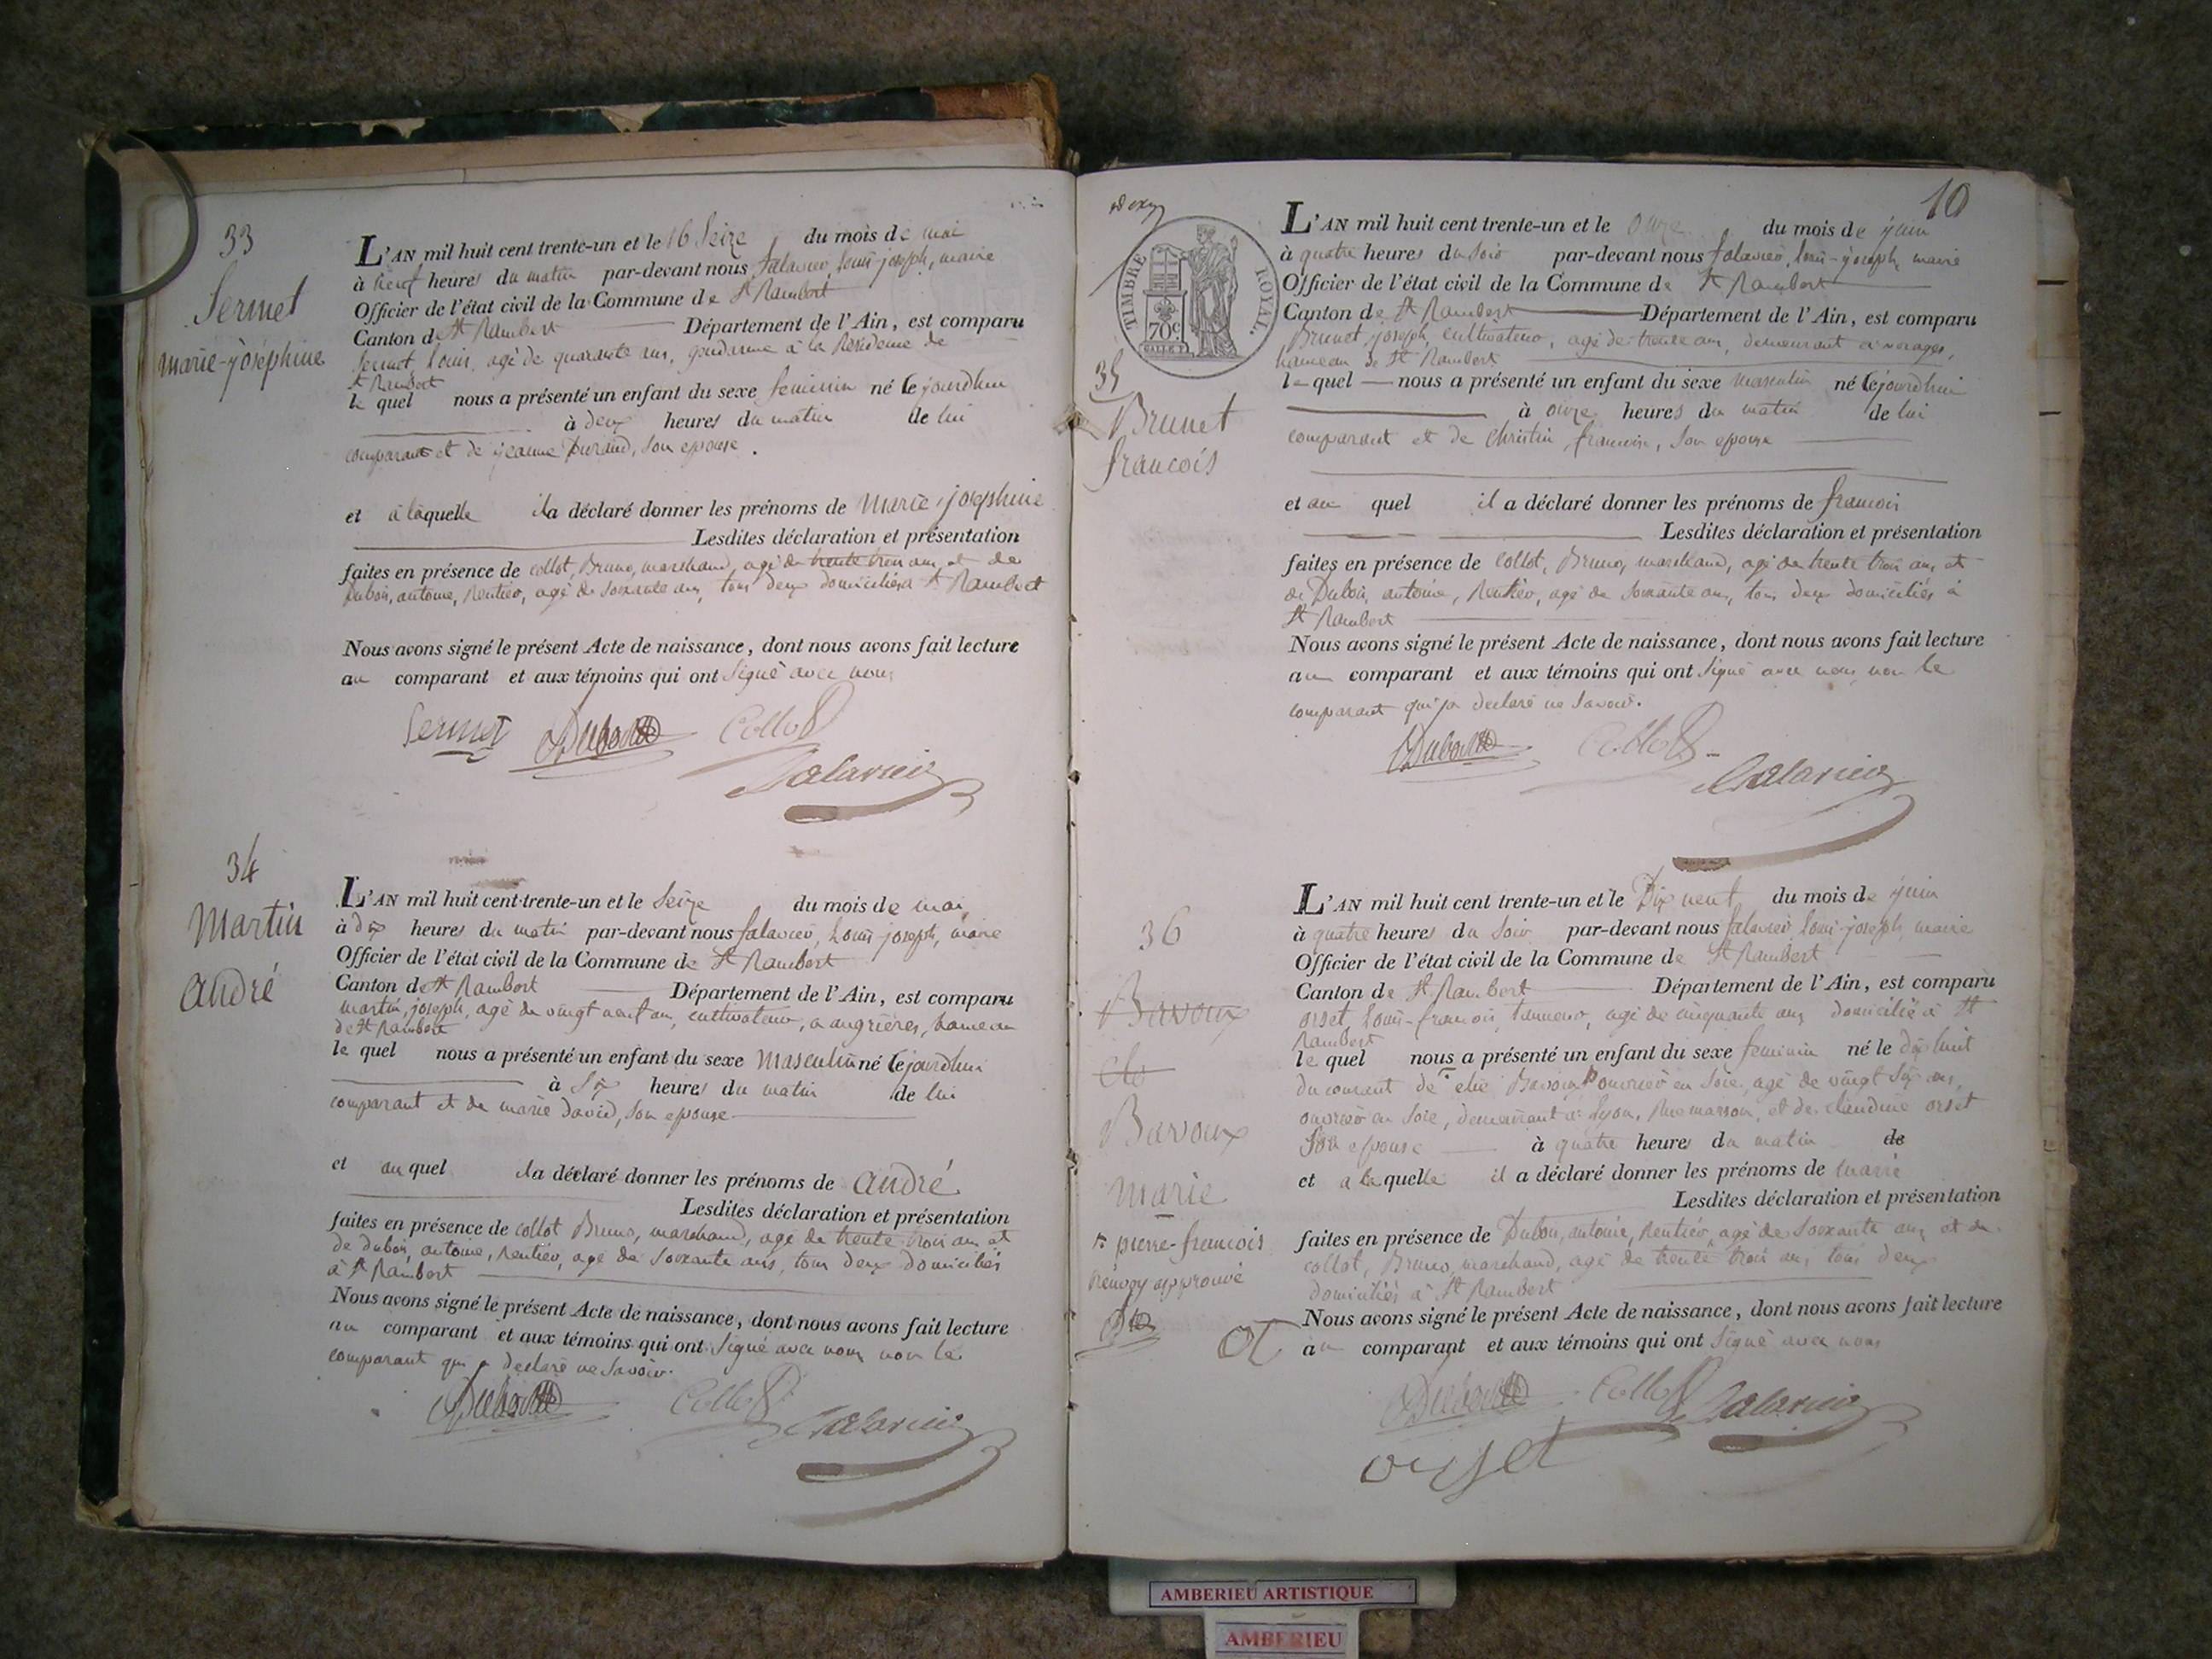 33
Sermet
marie-joséphine
L'AN mil huit cent trente-un et le 16 Seize du mois de mai
à neuf heures du matin par-devant nous falavier, louis joseph, maire
Officier de l'état civil de la Commune de St Rambert
Canton de St Rambert Département de l'Ain, est comparu
Sermet, louis, agé de quarante ans, gendarme à la Residence de
St Rambert
le quel nous a présenté un enfant du sexe feminin né cejourdhui
à deux heures du matin de lui
comparant et de jeanne Durand, son epouse.
et à laquelle il a déclaré donner les prénoms de marie-joséphine
Lesdites déclaration et présentation
faites en présence de collot, Bruno, marchand, agé de trente trois ans, et de
Dubois, antoine, Rentier, agé de soixante ans, tous deux domiciliés à St Rambert
Nous avons signé le présent Acte de naissance, dont nous avons fait lecture
au comparant et aux témoins qui ont signé avec nous
Sermet Dubois Collot
falavier
34
Martin
andré
L'AN mil huit cent trente-un et le Seize du mois de mai
à dix heures du matin par-devant nous falavier, louis joseph, maire
Officier de l'état civil de la Commune de St Rambert
Canton de St Rambert Département de l'Ain, est comparu
martin, joseph, agé de vingt neuf ans, cultivateur, a angrieres, hameau
de St Rambert
le quel nous a présenté un enfant du sexe Masculin né cejourdhui
à six heures du matin de lui
comparant et de marie david, son epouse
et au quel il a déclaré donner les prénoms de andré
Lesdites déclaration et présentation
faites en présence de collot Bruno, marchand, agé de trente trois ans et
de dubois, antoine, Rentier, agé de soixante ans, tous deux domiciliés
à St Rambert
Nous avons signé le présent Acte de naissance, dont nous avons fait lecture
au comparant et aux témoins qui ont signé avec nous non le
comparant qui a declaré ne savoir.
Dubois Collot falavier
10
TIMBRE ROYAL.
70c
35
Brunet
francois
L'AN mil huit cent trente-un et le onze du mois de juin
à quatre heures du soir par-devant nous falavier, louis-joseph, maire
Officier de l'état civil de la Commune de St Rambert
Canton de St Rambert Département de l'Ain, est comparu
Brunet, joseph, cultivateur, agé de trente ans, demeurant a vorages,
hameau de St Rambert
le quel nous a présenté un enfant du sexe masculin né cejourdhui
à onze heures du matin de lui
comparant et de christin, francoise, son epouse
et au quel il a déclaré donner les prénoms de francois
Lesdites déclaration et présentation
faites en présence de collot, Bruno, marchand, agé de trente trois ans, et
de Dubois, antoine, Rentier, agé de soixante ans, tous deux domiciliés à
St Rambert
Nous avons signé le présent Acte de naissance, dont nous avons fait lecture
au comparant et aux témoins qui ont signé avec nous, non le
comparant qui a declaré ne savoir.
Dubois Collot
falavier
36
Bavoux
Bavoux
marie
pierre-francois
renvoy approuvé
L'AN mil huit cent trente-un et le Dix neuf du mois de juin
à quatre heures du soir par-devant nous falavier, louis-joseph, maire
Officier de l'état civil de la Commune de St Rambert
Canton de St Rambert Département de l'Ain, est comparu
orset, louis-francois, tanneur, agé de cinquante ans, domicilié à St
Rambert
le quel nous a présenté un enfant du sexe feminin né le dix huit
du courant de elie Bavoux ouvrier en soie, agé de vingt six ans,
ouvrier en soie, demeurant à lyon, Rue masson, et de claudine orset
son epouse à quatre heures du matin de
et a laquelle il a déclaré donner les prénoms de marie
Lesdites déclaration et présentation
faites en présence de Dubois, antoine, Rentier, agé de soixante ans et de
collot, Bruno, marchand, agé de trente trois ans, tous deux
domiciliés à St Rambert
Nous avons signé le présent Acte de naissance, dont nous avons fait lecture
au comparant et aux témoins qui ont signé avec nous
Dubois Collot falavier
orset
AMBERIEU ARTISTIQUE
AMBERIEU